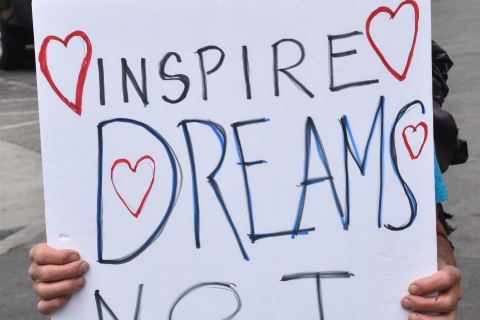 INSPIRE
DREAMS
NOT